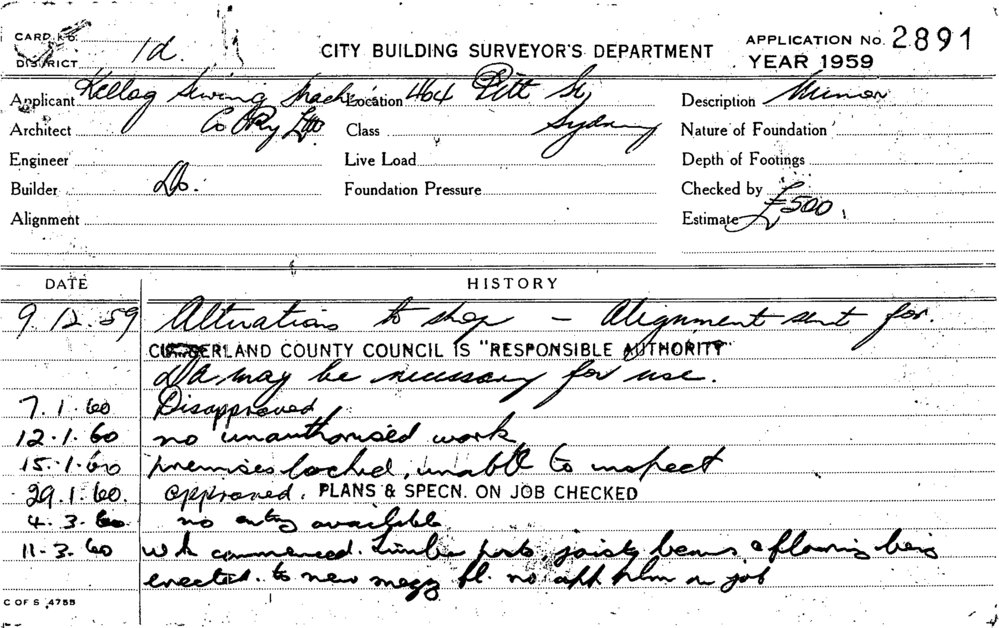 CARD No. 1d. CITY BUILDING SURVEYOR'S DEPARTMENT APPLICATION No. 2891
DISTRICT YEAR 1959
Applicant Kellog Sewing Machine Location 464 Pitt St Description Minor
Architect Co Pty Ltd. Class Sydney Nature of Foundation
Engineer Live Load Depth of Footings
Builder Do. Foundation Pressure Checked by
Alignment Estimate £500
DATE HISTORY
9.12.59 Alterations to shop — Alignment sent for.
CUMBERLAND COUNTY COUNCIL IS "RESPONSIBLE AUTHORITY"
Da may be necessary for use.
7.1.60 Disapproved
12.1.60 no unauthorised work
15.1.60 premises locked, unable to inspect
29.1.60. approved. PLANS & SPECN. ON JOB CHECKED
4.3.60 no entry available
11-3.60 wk commenced. Timber posts, joists beams & flooring being
erected. to new mezz fl. no app plan on job
C OF S 4755